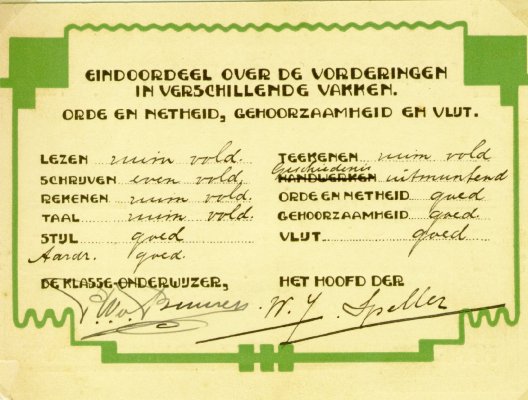 EINDOORDEEL OVER DE VORDERINGEN
IN VERSCHILLENDE VAKKEN.
ORDE EN NETHEID, GEHOORZAAMHEID EN VLIJT.
LEZEN ruim vold.
SCHRIJVEN even vold.
REKENEN ruim vold.
TAAL ruim vold.
STIJL goed
Aardr. goed.
TEEKENEN ruim vold
Geschiedenis
HANDWERKEN uitmuntend
ORDE EN NETHEID goed
GEHOORZAAMHEID goed.
VLIJT goed
DE KLASSE-ONDERWIJZER,
HET HOOFD DER
W. J. Speller